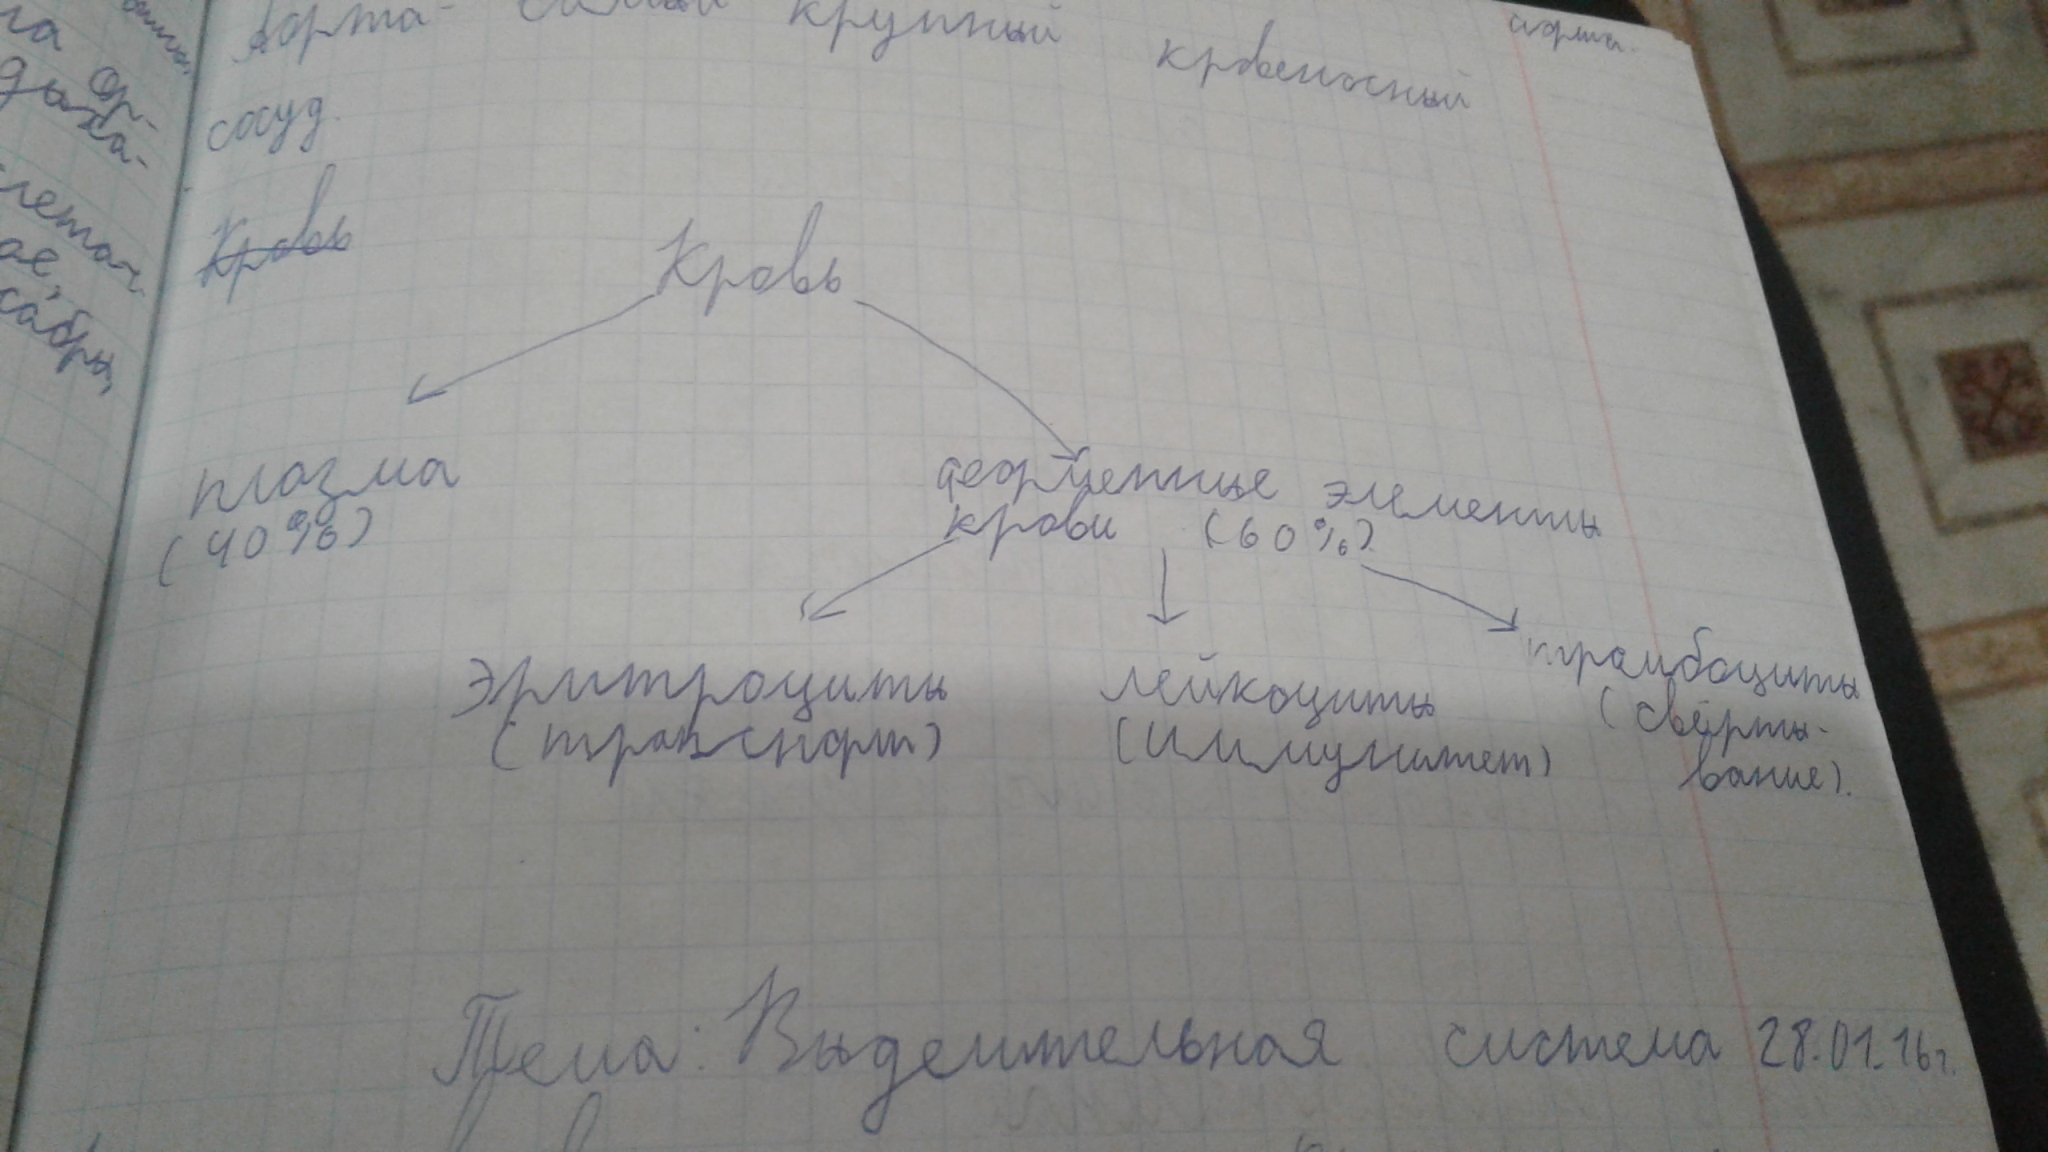 Аорта - самый крупный кровеносный
сосуд.
Кровь
Кровь
плазма
(40%)
форменные элементы
крови (60%).
эритроциты
(транспорт)
лейкоциты
(иммунитет)
тромбоциты
(свёрты-
вание).
Тема: Выделительная система 28.01.16г.